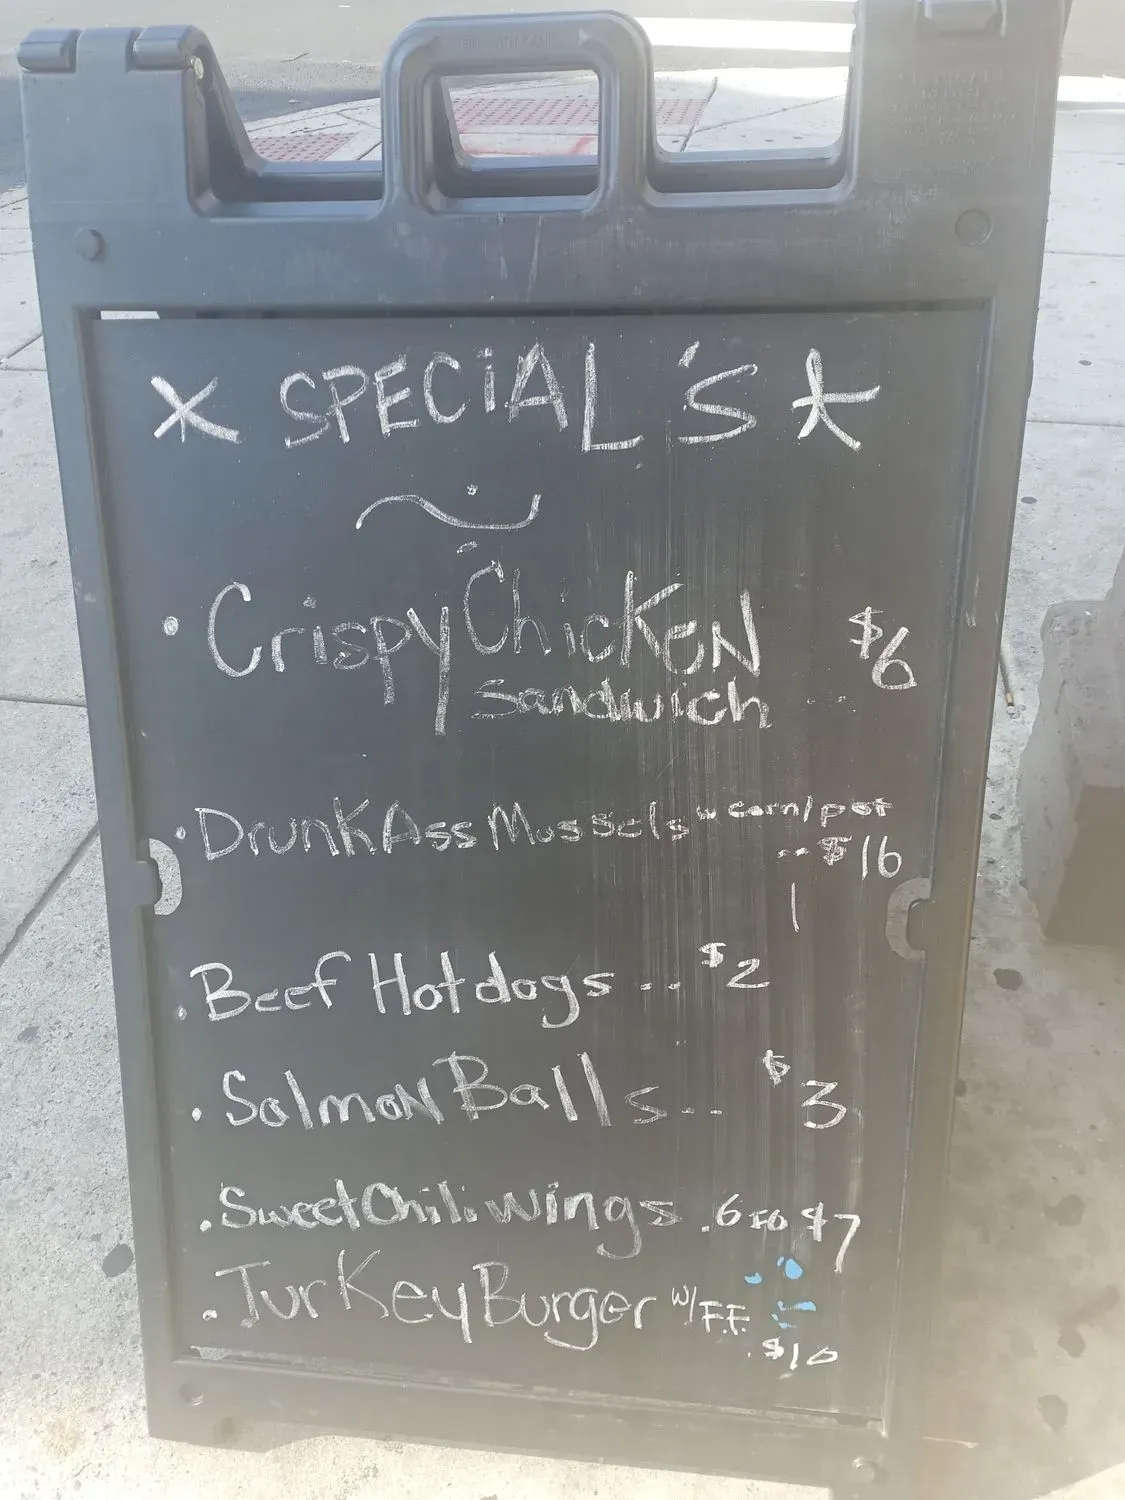 * SPECiAL'S *
• Crispy Chicken $6
Sandwich ...
• Drunk Ass Mussels w corn/pot
.. $16
• Beef Hotdogs .. $2
• Salmon Balls .. $3
• Sweet Chili wings . 6 for $7
• Turkey Burger w/ F.F.
. $10